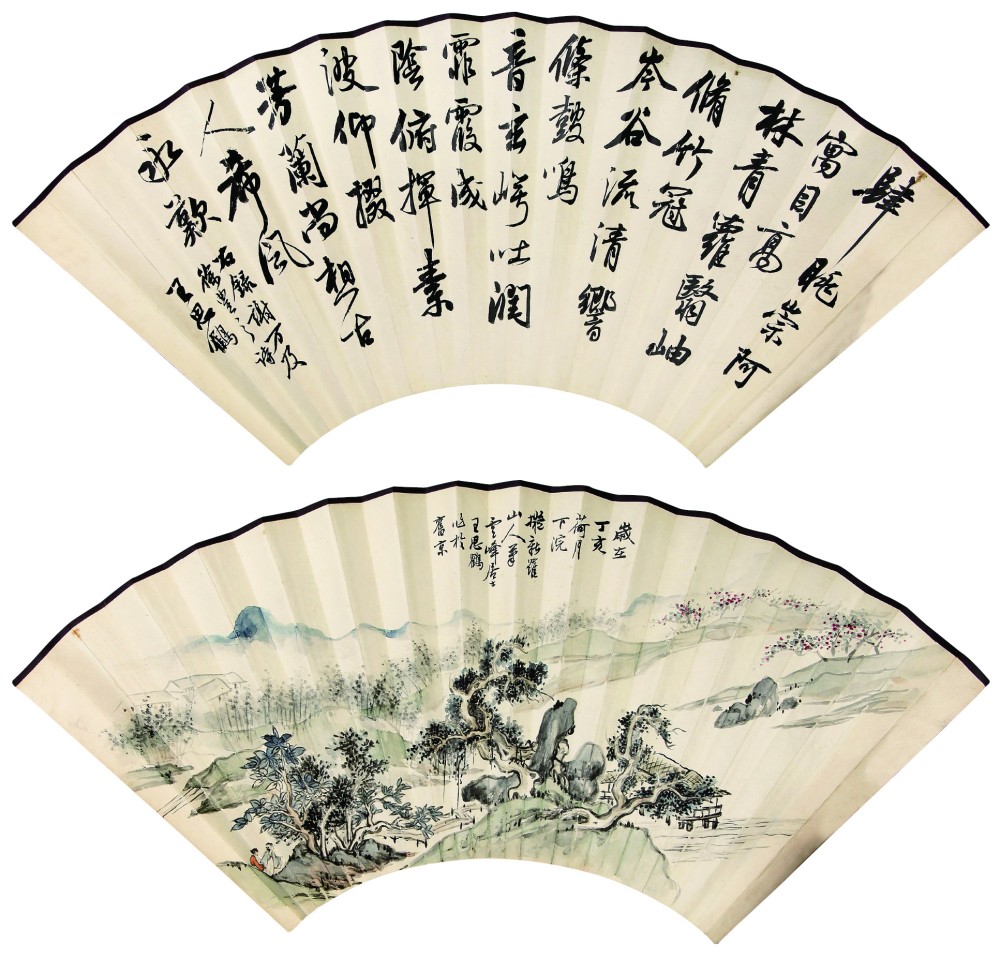 肆眺崇阿
寓目高
林青蘿翳岫
脩竹冠
岑谷流清響
條鼓鳴
音玄崿吐潤
霏霞成
陰俯揮素
波仰掇
芳蘭尚想古
人希風
永歎
右錄謝万及
徐豐之詩
王思鶴
歲在
丁亥
荷月
下浣
擬新羅
山人筆
雲峰居士
王思鶴
作於
舊京